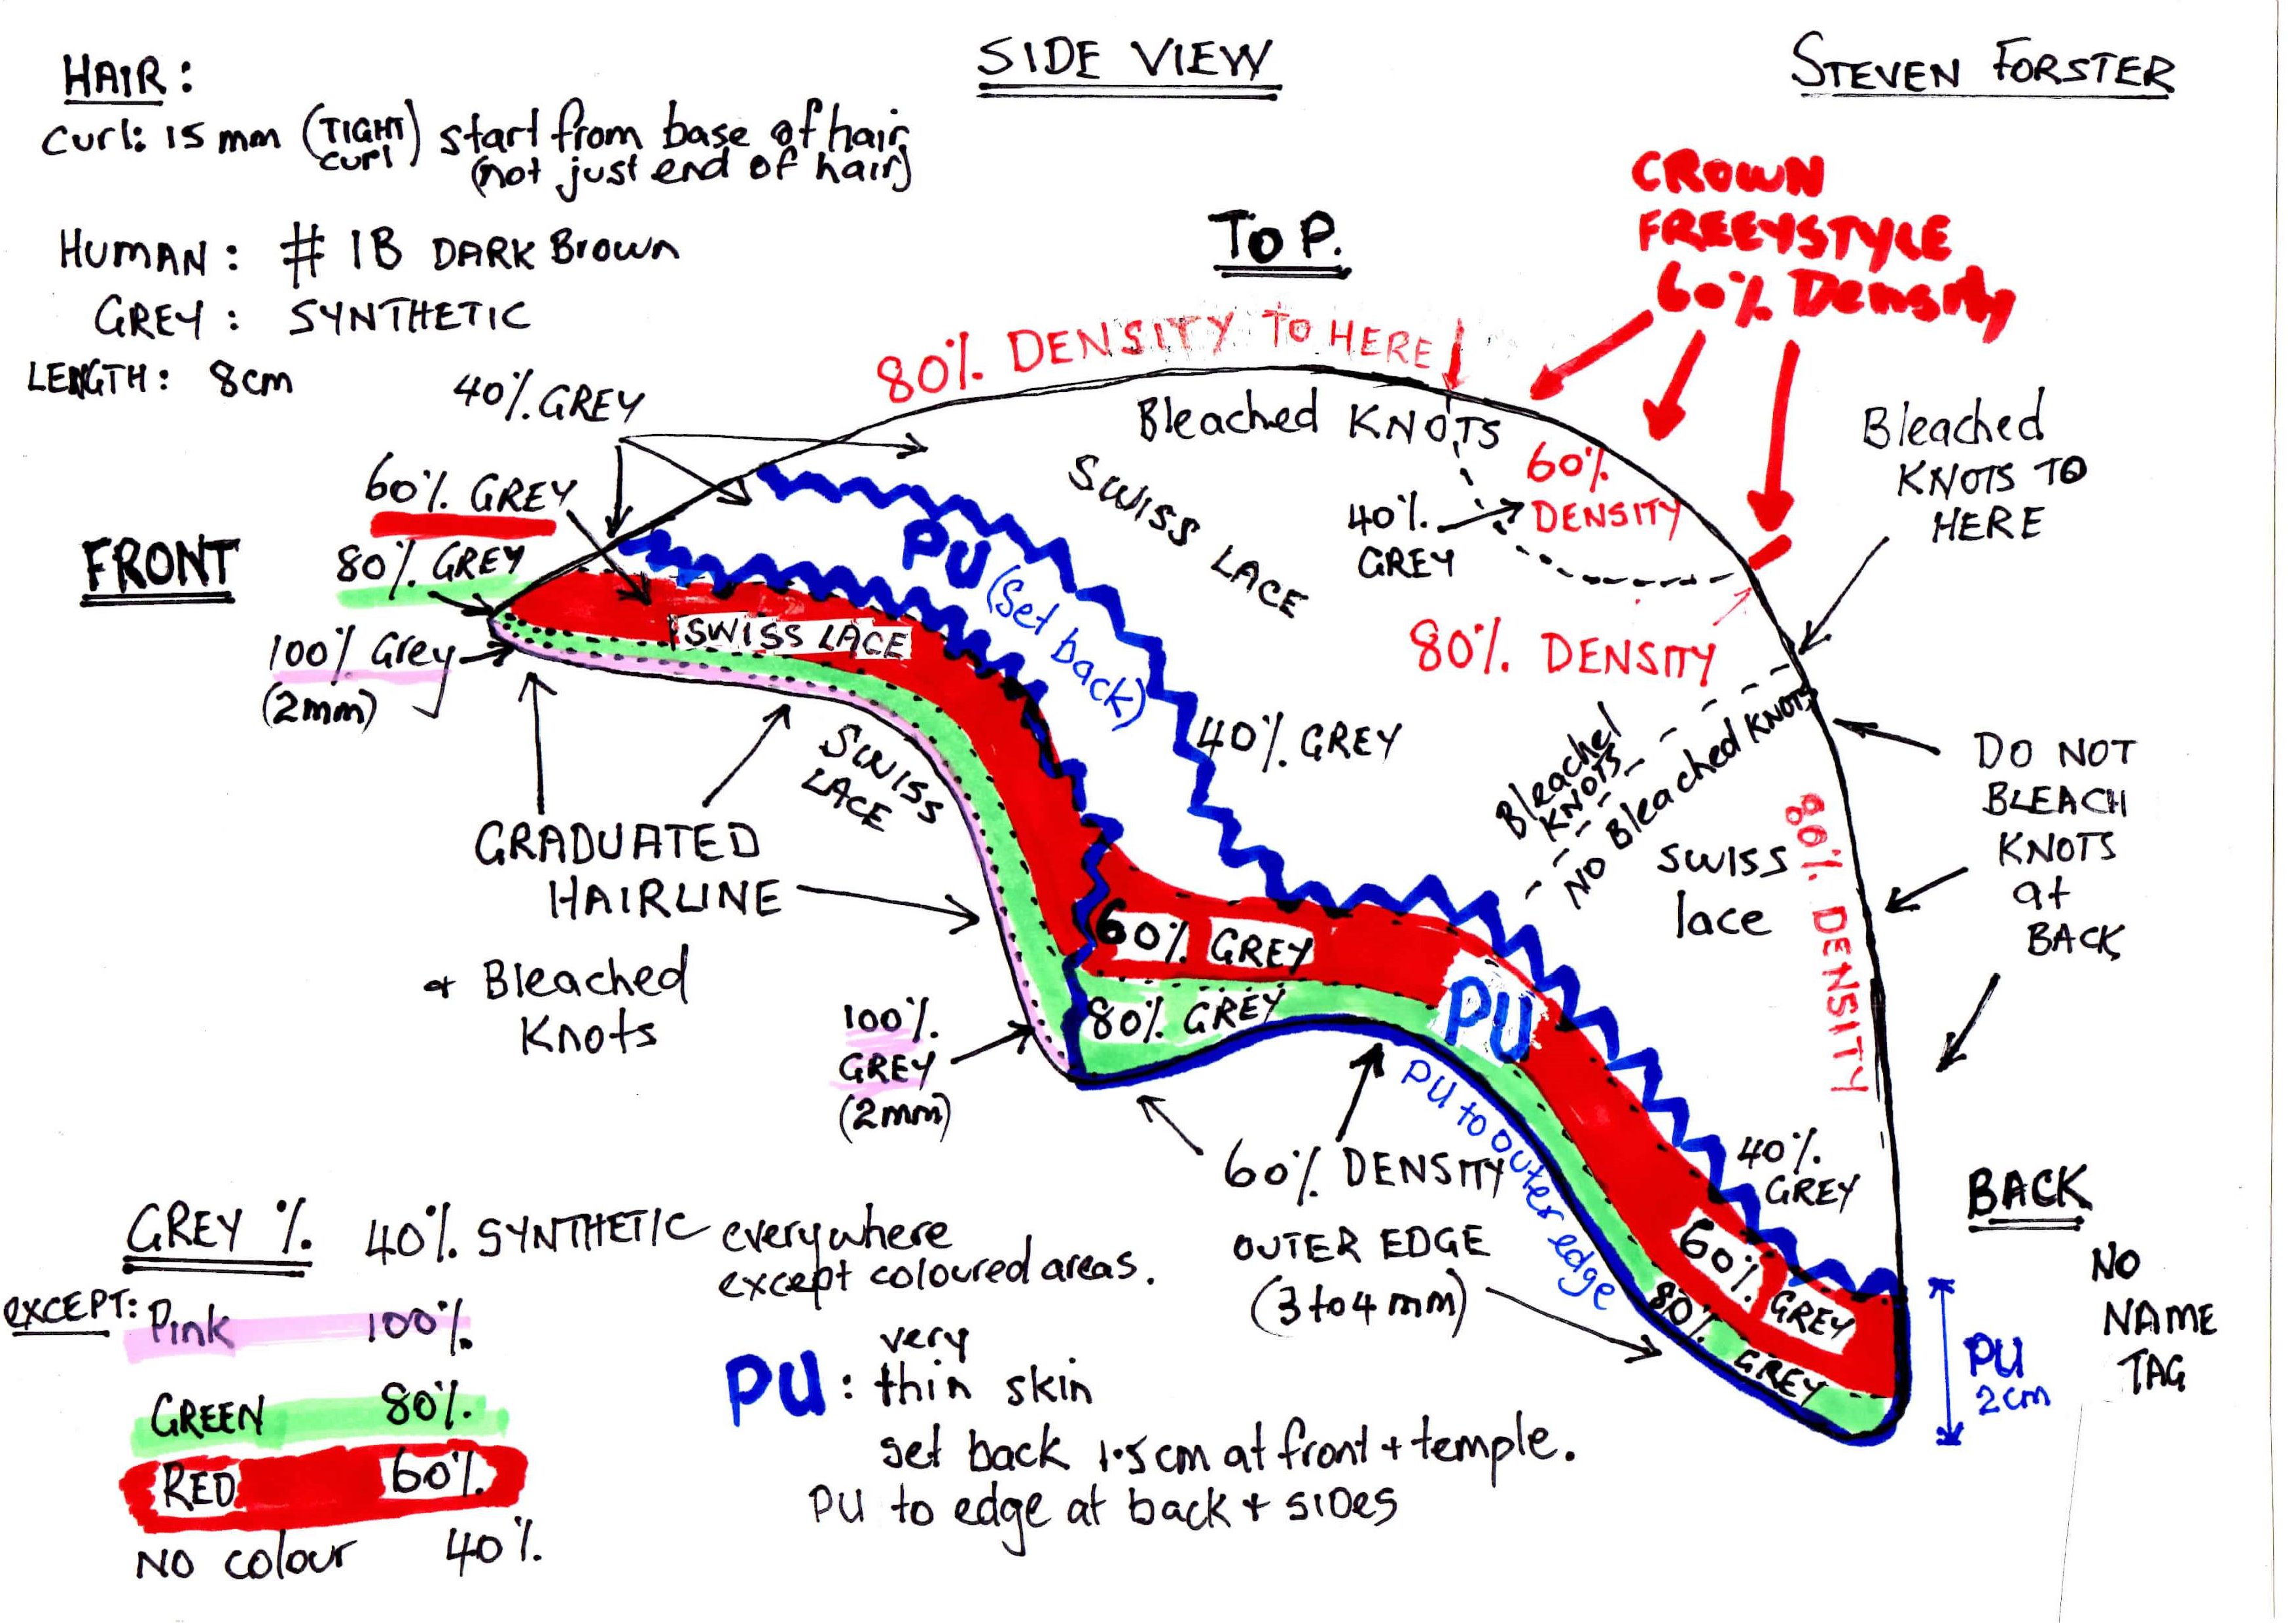 SIDE VIEW
STEVEN FORSTER
HAIR:
Curl: 15mm (TIGHT curl) start from base of hair
(not just end of hair)
HUMAN: # 1B DARK Brown
GREY: SYNTHETIC
LENGTH: 8cm
TOP.
CROWN
FREEYSTYLE
60% Density
80% DENSITY TO HERE
40% GREY
60% GREY
80% GREY
100% Grey
(2mm)
FRONT
Bleached KNOTS
SWISS LACE
60%
DENSITY
40%
GREY
80% DENSITY
Bleached
KNOTS TO
HERE
PU (Set back)
SWISS LACE
SWISS
LACE
40% GREY
Bleached
KNOTS
NO Bleached KNOTS
SWISS
lace
80% DENSITY
DO NOT
BLEACH
KNOTS
at
BACK
GRADUATED
HAIRLINE
+ Bleached
Knots
60% GREY
80% GREY
PU
PU to outer edge
100%
GREY
(2mm)
60% DENSITY
OUTER EDGE
(3 to 4 mm)
40%
GREY
60% GREY
80% GREY
BACK
NO
NAME
TAG
PU
2cm
GREY % 40% SYNTHETIC everywhere
except coloured areas.
EXCEPT: Pink 100%
GREEN 80%
RED 60%
NO colour 40%
PU: very
thin skin
set back 1.5cm at front + temple.
PU to edge at back + SIDES